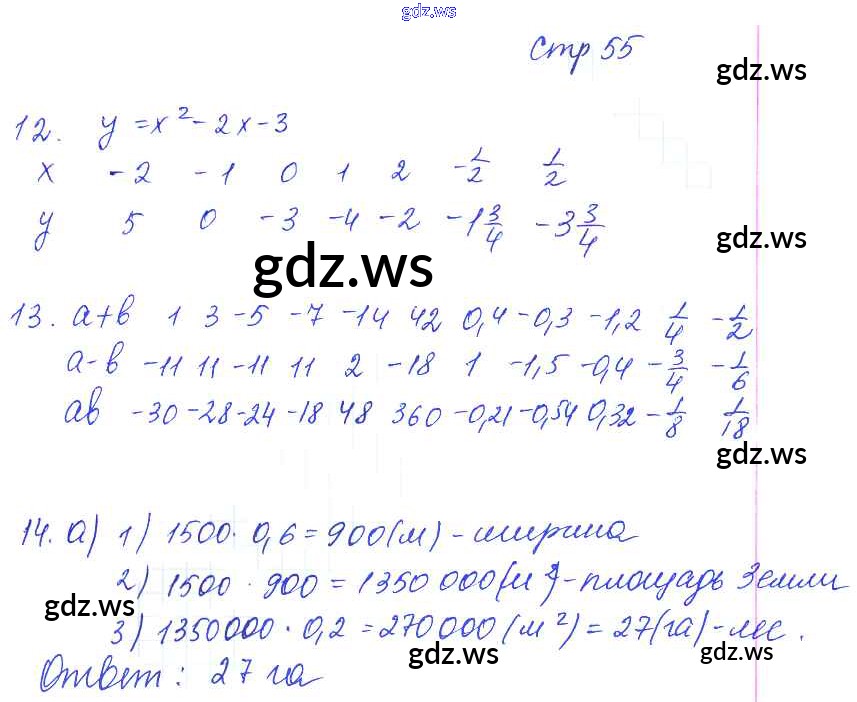 gdz.ws
Стр 55
gdz.ws
12. y = x² - 2x - 3
x -2 -1 0 1 2 -1/2 1/2
y 5 0 -3 -4 -2 -1 3/4 -3 3/4
gdz.ws
gdz.ws
13. a+b 1 3 -5 -7 -14 42 0,4 -0,3 -1,2 1/4 -1/2
a-b -11 11 -11 11 2 -18 1 -1,5 -0,4 -3/4 -1/6
ab -30 -28 -24 -18 48 360 -0,21 -0,54 0,32 -1/8 1/18
gdz.ws
14. а) 1) 1500 · 0,6 = 900 (м) - ширина
2) 1500 · 900 = 1350 000 (м²) - площадь Земли
gdz.ws
3) 1350000 · 0,2 = 270000 (м²) = 27 (га) - лес.
gdz.ws gdz.ws
Ответ: 27 га